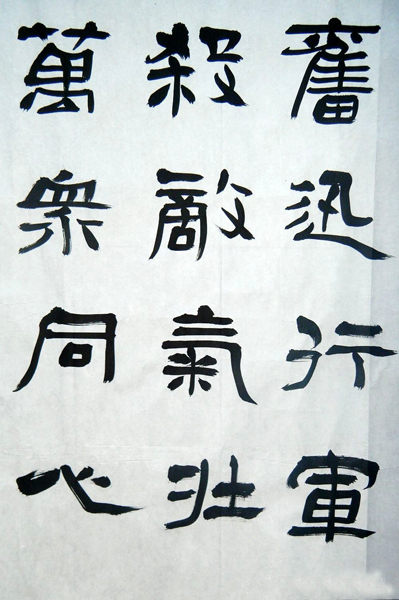 奮迅行軍
殺敵氣壯
萬衆同心